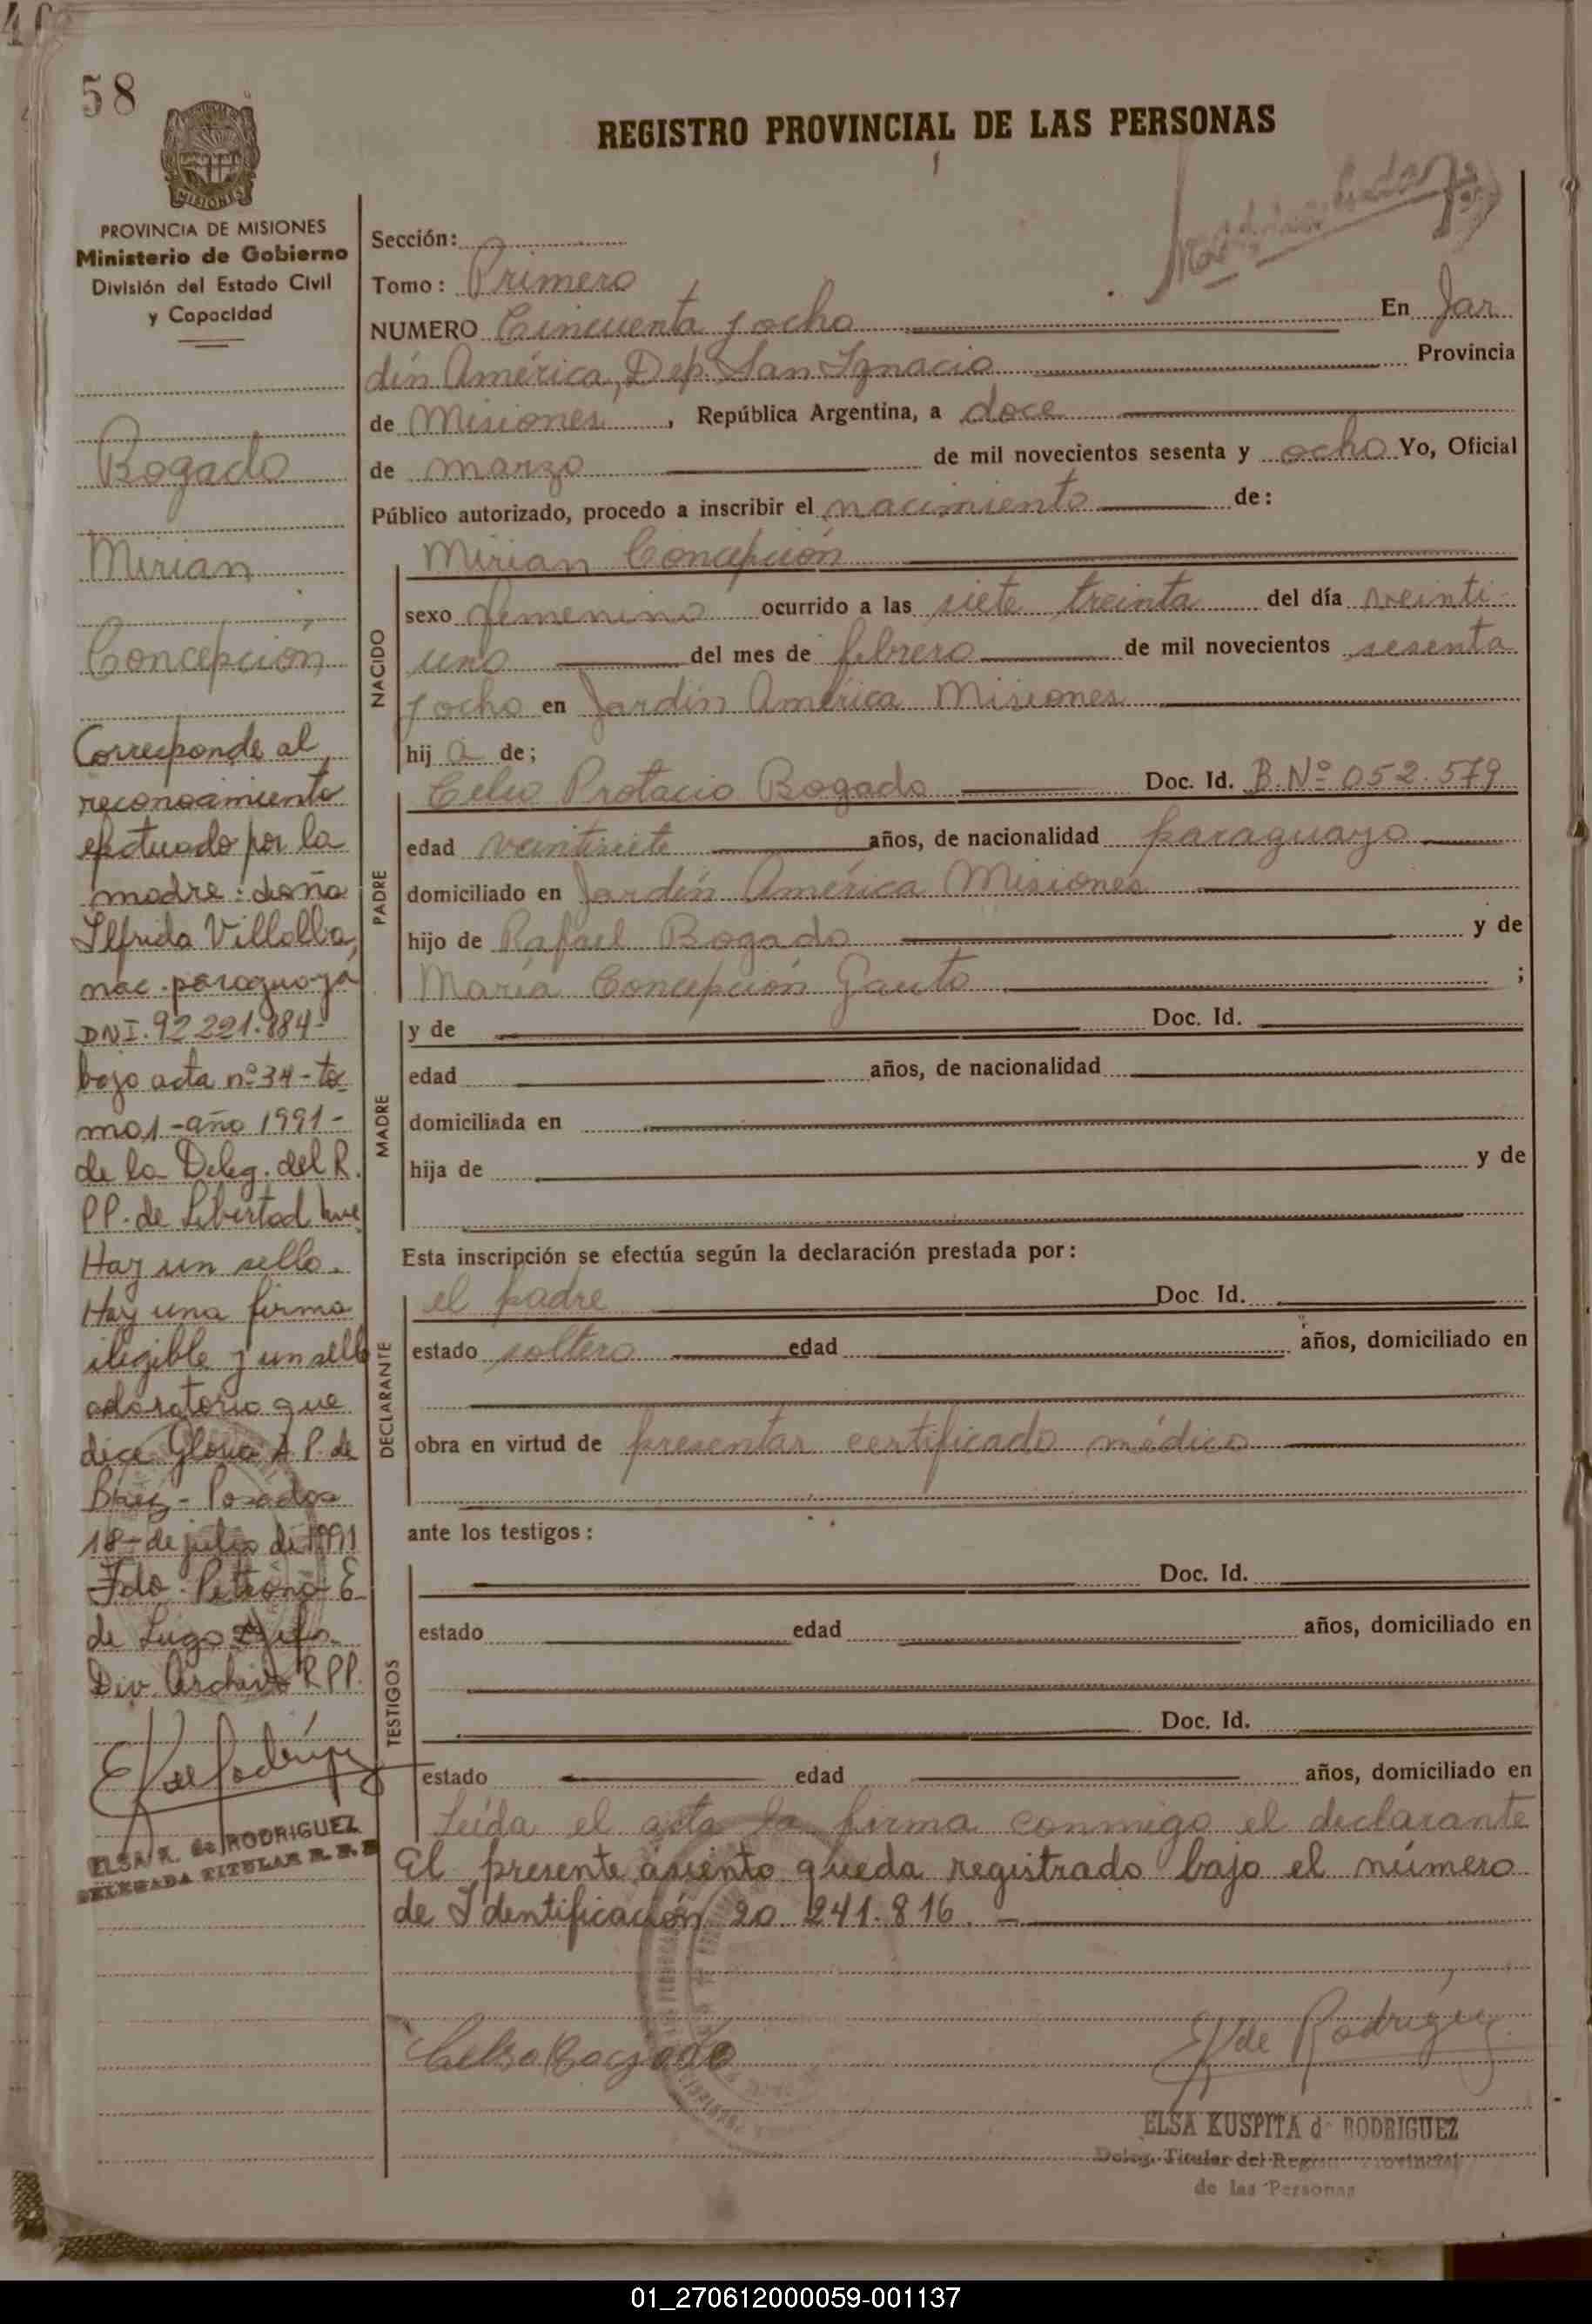 58
REGISTRO PROVINCIAL DE LAS PERSONAS
MISIONES
PROVINCIA DE MISIONES
Ministerio de Gobierno
División del Estado Civil
y Capacidad
Bogado
Mirian
Concepción
Corresponde al
reconocimiento
efectuado por la
madre: doña
Ilfrida Villalba,
nac. paraguaya
DNI. 92 221.884-
bajo acta nº 34 - to
mo 1 - año 1991 -
de la Deleg. del R.
PP. de Libertad
Hay un sello.
Hay una firma
ilegible y un sello
aclaratorio que
dice Gloria A P. de
Báez - Posadas
18 - de julio de 1991
Fdo. Petrona E
de Lugo
Div. Archivo R PP.
E K de Rodríguez
ELSA K. de RODRIGUEZ
DELEGADA TITULAR R. P. P.
Sección:
Tomo: Primero
NUMERO Cincuenta y ocho En Jar
dín América, Dep. San Ignacio Provincia
de Misiones, República Argentina, a doce
de marzo de mil novecientos sesenta y ocho Yo, Oficial
Público autorizado, procedo a inscribir el nacimiento de:
NACIDO
Mirian Concepción
sexo femenino ocurrido a las siete treinta del día veinti-
uno del mes de febrero de mil novecientos sesenta
y ocho en Jardín América Misiones
hij a de;
PADRE
Celso Protacio Bogado Doc. Id. B.Nº 052.579
edad veintisiete años, de nacionalidad paraguayo
domiciliado en Jardín América Misiones
hijo de Rafael Bogado y de
María Concepción Gauto ;
MADRE
y de Doc. Id.
edad años, de nacionalidad
domiciliada en
hija de y de
Esta inscripción se efectúa según la declaración prestada por:
DECLARANTE
el padre Doc. Id.
estado soltero edad años, domiciliado en
obra en virtud de presentar certificado médico
ante los testigos:
TESTIGOS
Doc. Id.
estado edad años, domiciliado en
Doc. Id.
estado edad años, domiciliado en
Leída el acta la firma conmigo el declarante
El presente asiento queda registrado bajo el número
de Identificación 20 241.816. -
Celso Bogado
E K de Rodríguez
ELSA KUSPITA de RODRIGUEZ
Deleg. Titular del Registro Provincial
de las Personas
01_270612000059-001137